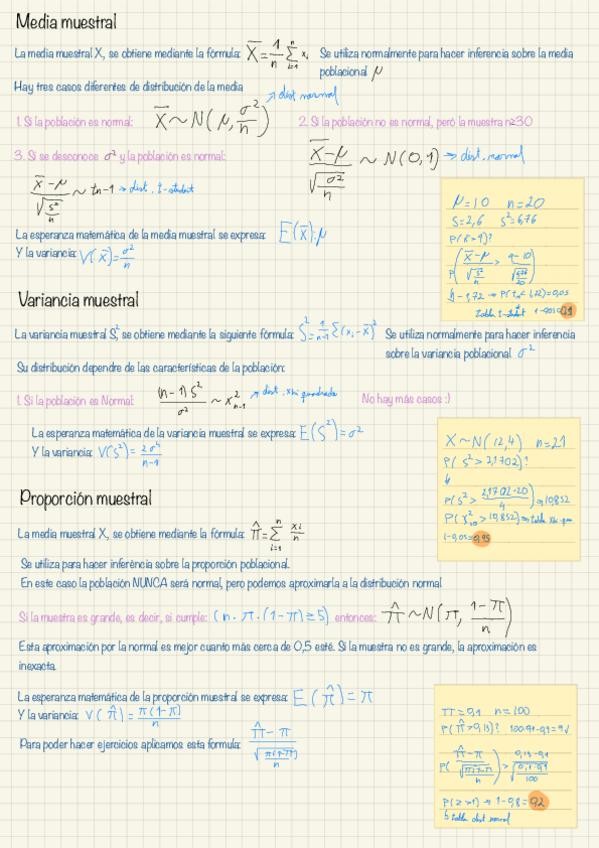 Media muestral
La media muestral X, se obtiene mediante la fórmula: X̅ = 1/n Σ(i=1, n) xᵢ Se utiliza normalmente para hacer inferencia sobre la media
poblacional μ
Hay tres casos diferentes de distribución de la media
→ dist. normal
1. Si la población es normal: X̅ ~ N(μ, σ²/n) 2. Si la población no es normal, pero la muestra n≥30
3. Si se desconoce σ² y la población es normal: (X̅-μ)/√(σ²/n) ~ N(0,1) → dist. normal
(X̅-μ)/√(s²/n) ~ tn-1 → dist. t-student
La esperanza matemática de la media muestral se expresa: E(X̅)=μ
Y la varianza: V(X̅)=σ²/n
μ=10 n=20
S=2,6 S²=6,76
P(
(X̅-μ)/√(s²/n) >
1-0,05=
Variancia muestral
La variancia muestral S², se obtiene mediante la siguiente fórmula: S²=1/(n-1) Σ(xᵢ-x̅)² Se utiliza normalmente para hacer inferencia
sobre la variancia poblacional σ²
Su distribución depende de las características de la población:
1. Si la población es Normal: (n-1)S²/σ² ~ x²n-1 → dist. xhi quadrada No hay más casos :)
La esperanza matemática de la variancia muestral se expresa: E(S²)=σ²
Y la varianza: V(S²)=2σ⁴/(n-1)
X~N(12,4) n=21
P(S²>2,1702)?
P(S²> 2,1702·20/4)=10,852
P(x²20>10,852)→ tabla xhi
1-0,05=0,95
Proporción muestral
La media muestral X, se obtiene mediante la fórmula: π̂=Σ(i=1, n) xi/n
Se utiliza para hacer inferència sobre la proporción poblacional.
En este caso la población NUNCA será normal, pero podemos aproximarla a la distribución normal
Si la muestra es grande, es decir, si cumple: (n·π·(1-π)≥5) entonces: π̂~N(π, (1-π)/n)
Esta aproximación por la normal es mejor cuanto más cerca de 0,5 esté. Si la muestra no es grande, la aproximación es
inexacta.
La esperanza matemática de la proporción muestral se expresa: E(π̂)=π
Y la varianza: V(π̂)=π(1-π)/n
Para poder hacer ejercicios aplicamos esta formula: (π̂-π)/√(π(1-π)/n)
π=0,1 n=100
P(π̂>0,13)? 100·0,1·0,9=9
P((π̂-π)/√(π(1-π)/n) > (0,13-0,1)/√(0,1·0,9/100)
P(z>1)→1-0,8=0,2
tabla dist normal